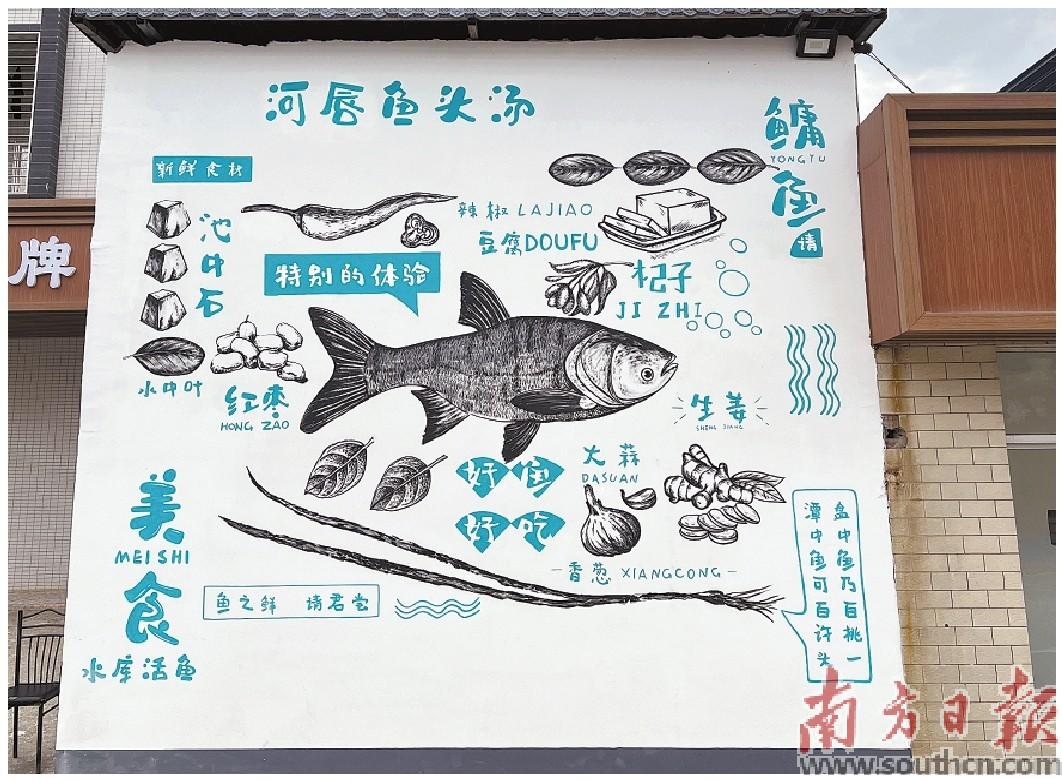 河唇鱼头汤
鳙
YONGYU
鱼
请
新鲜食材
池中石
辣椒 LAJIAO
豆腐DOUFU
特别的体验
杞子
JI ZHI
牌
水中叶
红枣
HONG ZAO
生姜
SHENG JIANG
大蒜
DASUAN
好鱼
好吃
美
MEISHI
食
水库活鱼
香葱 XIANGCONG
鱼之鲜 请君尝
盘中鱼乃百桃一
潭中鱼可百许头
南方日报
www.southcn.com